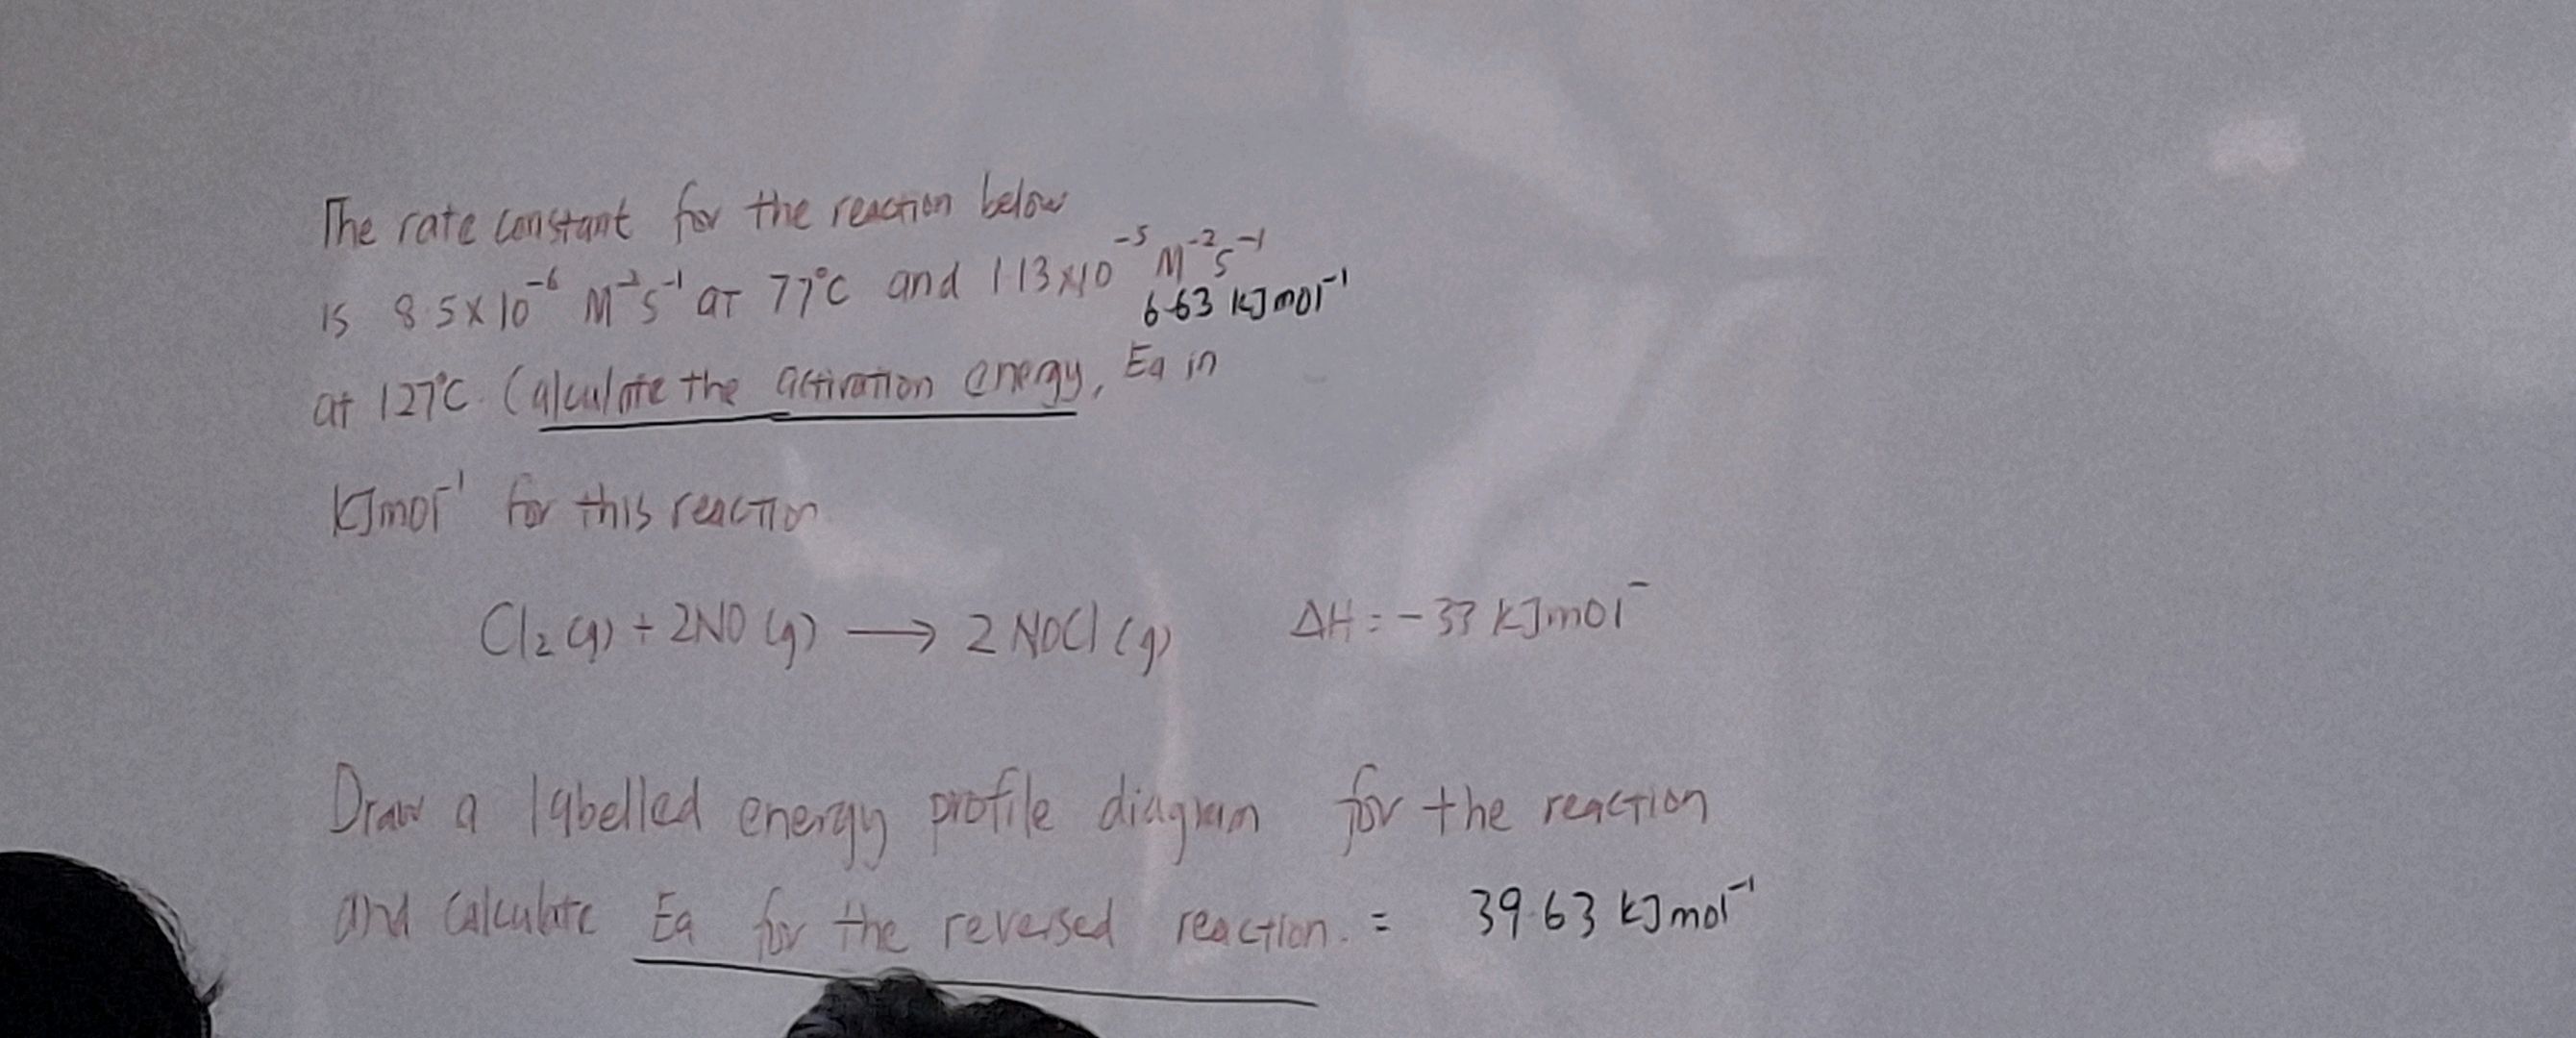 The rate constant for the reaction below
is 8.5x10⁻⁶ M⁻²s⁻¹ at 77°C and 1.13x10⁻⁵ M⁻²s⁻¹
6.63 kJmol⁻¹
at 127°C. Calculate the activation energy, Ea in
kJmol⁻¹ for this reaction
Cl₂(g) + 2NO(g) → 2NOCl(g) ΔH = -33 kJmol⁻
Draw a labelled energy profile diagram for the reaction
and calculate Ea for the reversed reaction. = 39.63 kJmol⁻¹